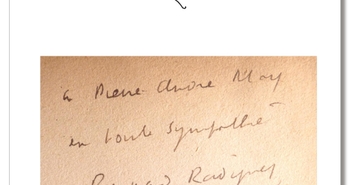 à Pierre André May
en toute sympathie
Raymond Radiguet